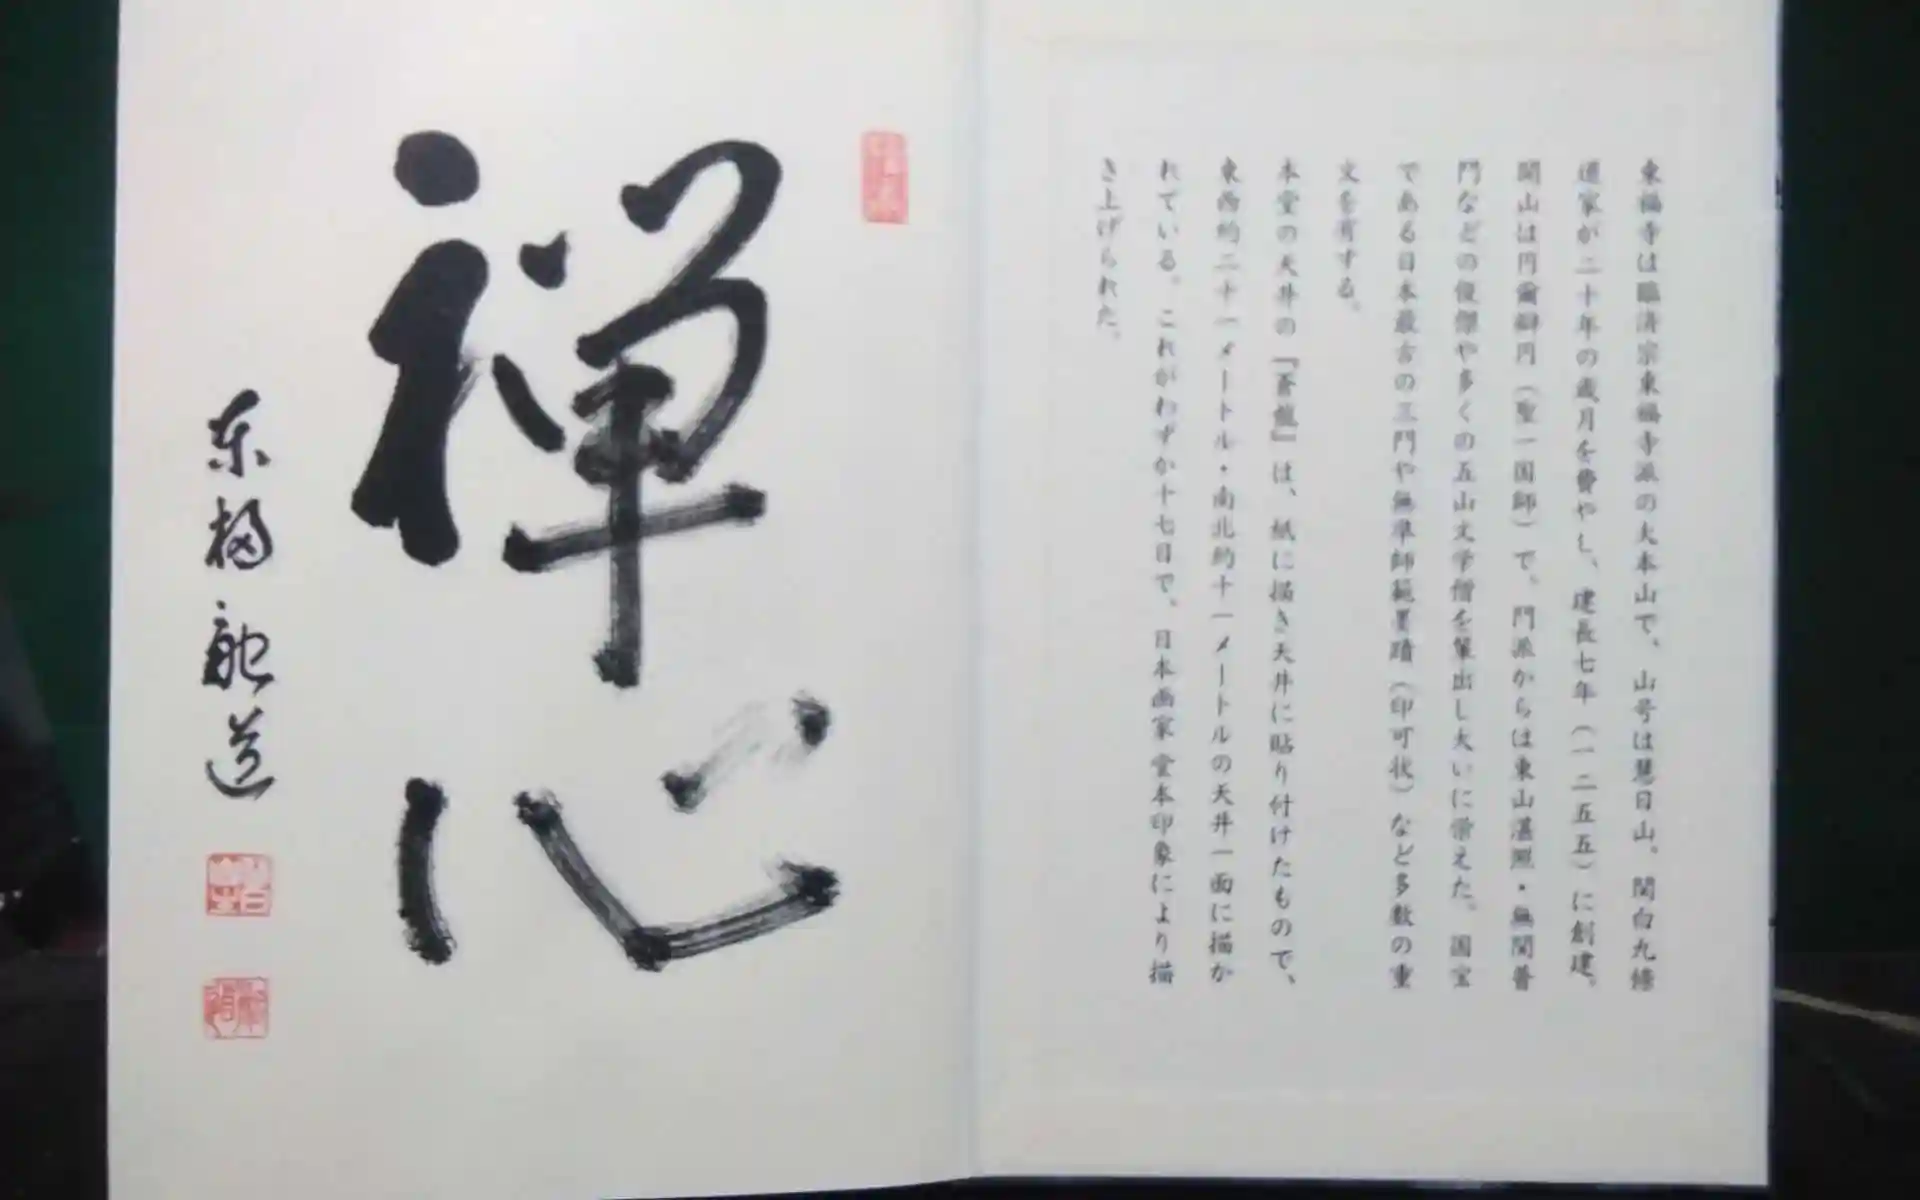 東福寺は臨済宗東福寺派の大本山で、山号は慧日山。関白九條
道家が二十年の歳月を費やし、建長七年（一二五五）に創建。
開山は円爾辯円（聖一国師）で、門派からは東山湛照・無関普
門などの俊傑や多くの五山文学僧を輩出し大いに栄えた。国宝
である日本最古の三門や無準師範墨蹟（印可状）など多数の重
文を有する。
本堂の天井の『蒼龍』は、紙に描き天井に貼り付けたもので、
東西約二十一メートル・南北約十一メートルの天井一面に描か
れている。これがわずか十七日で、日本画家堂本印象により描
き上げられた。
禅心
东福
道